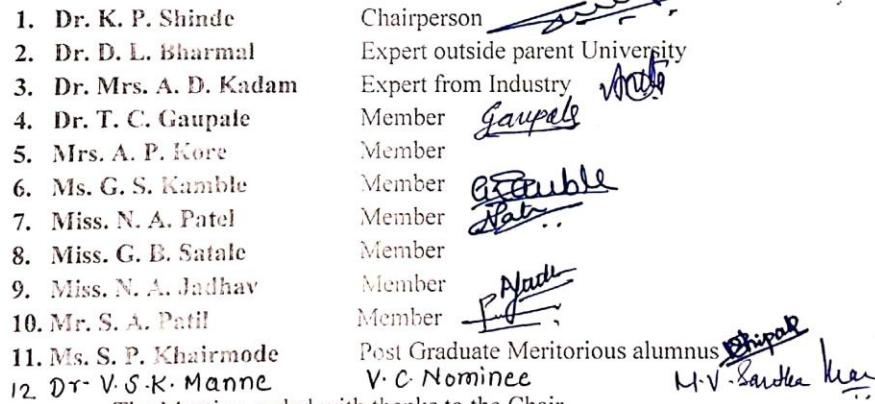 1. Dr. K. P. Shinde Chairperson
2. Dr. D. L. Bharmal Expert outside parent University
3. Dr. Mrs. A. D. Kadam Expert from Industry
4. Dr. T. C. Gaupale Member Gaupale
5. Mrs. A. P. Kore Member
6. Ms. G. S. Kamble Member GSKamble
7. Miss. N. A. Patel Member
8. Miss. G. B. Satale Member
9. Miss. N. A. Jadhav Member
10. Mr. S. A. Patil Member
11. Ms. S. P. Khairmode Post Graduate Meritorious alumnus
12 Dr- V. S. K. Manne V. C. Nominee
with thanks to the Chair